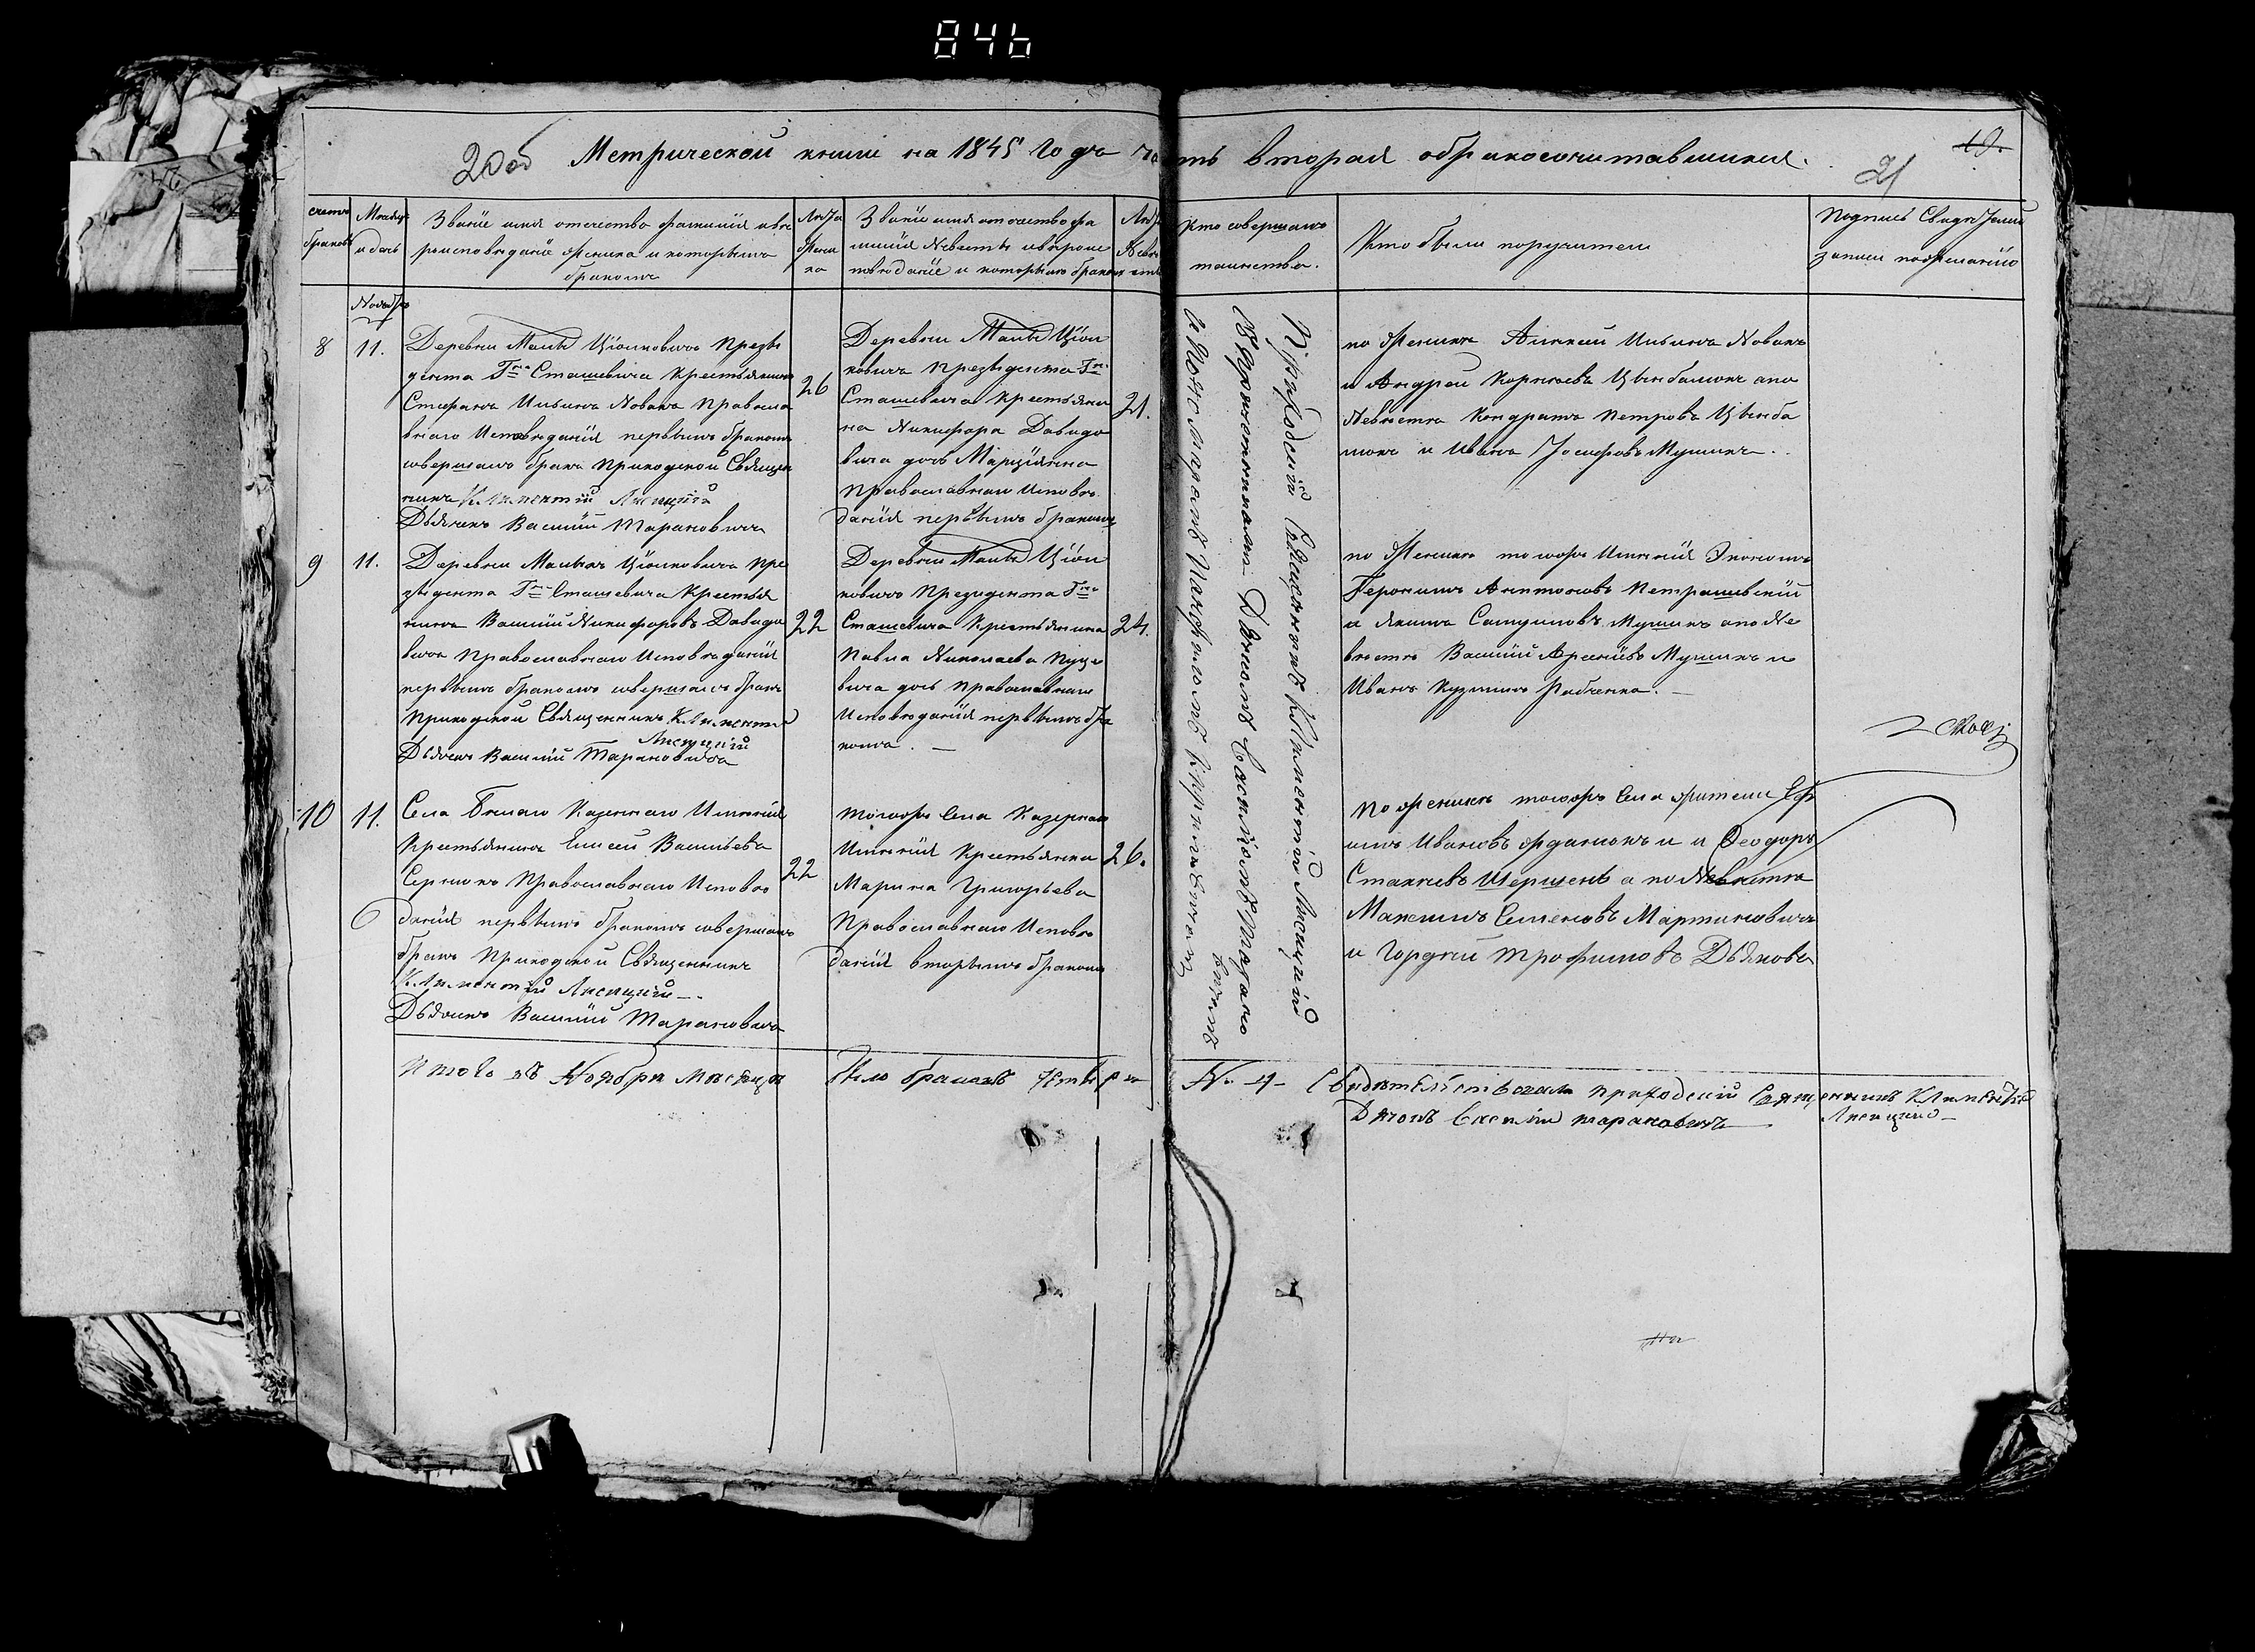 846
20 об Метрической книги на 1845 Года часть вторая о бракосочитавшихся.
19.
21
счетъ браковъ
Месяцъ и день
Званіе имя отечество фамилія и ве
роисповеданіе Жениха и которымъ
бракомъ
Лѣта Жени
ха
Званіе имя отечество фа
милія Невесты и вероис
поведаніе и которымъ бракомъ
Лѣта Неве
сты
Кто совершалъ
таинство.
Кто были поручители
Подпись Свидетелей
записи по желанію
Ноябрь
8
11.
Деревни Малы Ціолковичъ Презы
дента Гна Сташевича Крестьянинъ
Стефанъ Ильинъ Новакъ Правосла
внаго Исповеданія первымъ бракомъ
совершалъ бракъ Приходской Священ
никъ Климентій Лисицкій
Дьячекъ Василій Тарановичъ
26
Деревни Малы Ціол
ковичъ Презыдента Гна
Сташевича Крестьяни
на Никифора Давидо
вича дочь Марціянна
Православнаго Испове
данія первымъ бракомъ
21.
по Женихе Алексей Ильинъ Новакъ
и Андрей Корнеевъ Цымбалюкъ а по
Невесте Кондратъ Петровъ Цымба
люкъ и Иванъ Іосифовъ Мушикъ.
9
11.
Деревни Малыхъ Ціолковичъ Пре
зыдента Гна Сташевича Крестья
нинъ Василій Никифоровъ Давидо
вичъ Православнаго Исповеданія
первымъ бракомъ совершалъ бракъ
Приходской Священникъ Климентій
Лисицкій
Дьячекъ Василій Тарановичъ
22
Деревни Малы Ціол
ковичъ Презыдента Гна
Сташевича Крестьянина
Павла Николаева Пуце
вича дочь Православнаго
Исповеданія первымъ бра
комъ. —
24.
по Женихе тогожъ Именія Экономъ
Геронимъ Антоновъ Петрашевскій
и Якимъ Самуиловъ Мушикъ а по Не
весте Василій Арсеніевъ Мушикъ и
Иванъ Кузминъ Рабченка. —
10
11.
Села Белаго Казеннаго Именія
Крестьянинъ Елисей Васильевъ
Православнаго Испове
данія первымъ бракомъ совершалъ
бракъ Приходской Священникъ
Климентій Лисицкій —.
Дьячекъ Василій Тарановичъ
22
тогожъ Села Казеннаго
Именія Крестьянка
Марина Григорьева
Православнаго Испове
данія вторымъ бракомъ
26.
По женихе тогожъ Села жители Еф
имъ Ивановъ и Феодоръ
а по Невесте
Максимъ Семеновъ Мартиновичъ
и Гордей Трофимовъ Дьяковъ
Приходскій Священникъ Климентій Лисицкій
Дьячокъ Василій Тарано
вичъ
Итого въ Ноябри Месяце было браковъ четыре № 4 Свидетельствовали приходскій Священникъ Климентій
Лисицкій —
Дячокъ Василій Тарановичъ